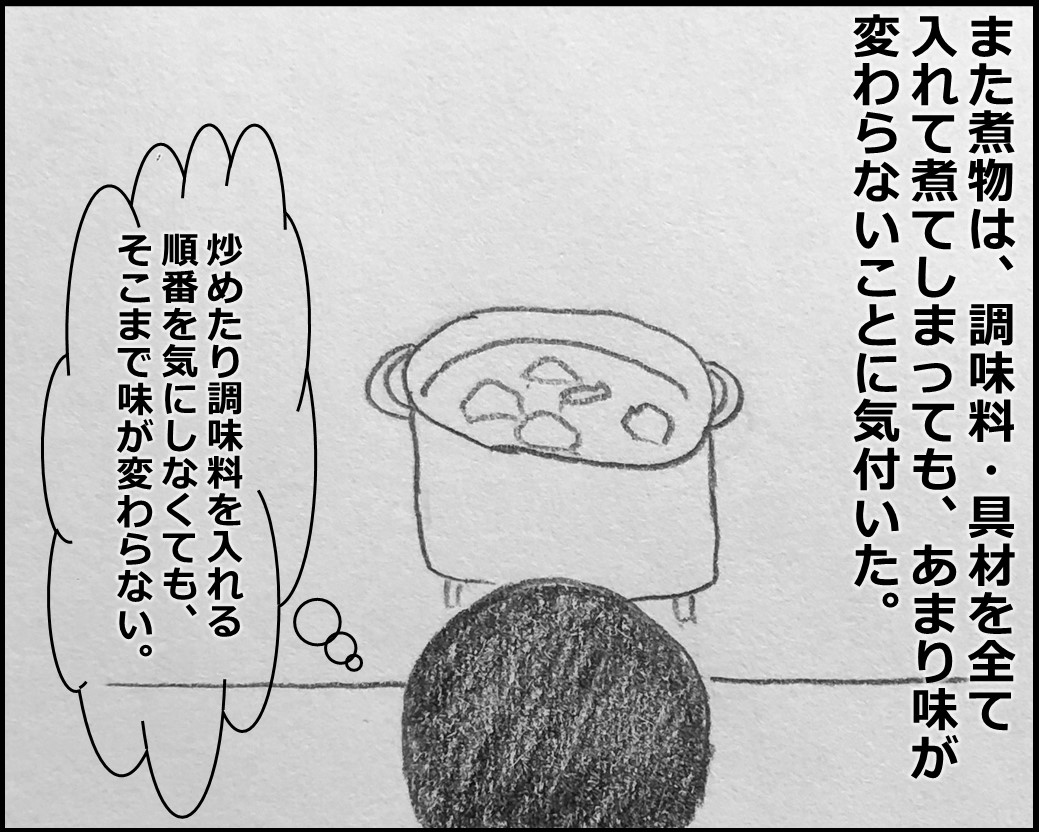 また煮物は、調味料・具材を全て
入れて煮てしまっても、あまり味が
変わらないことに気付いた。
炒めたり調味料を入れる
順番を気にしなくても、
そこまで味が変わらない。